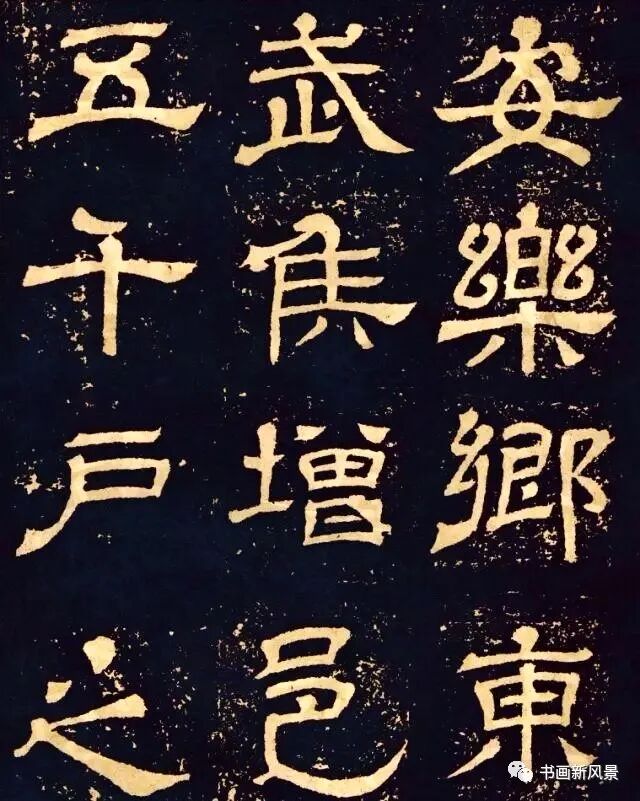 安樂鄉東
武侯增邑
五千戶之
书画新风景